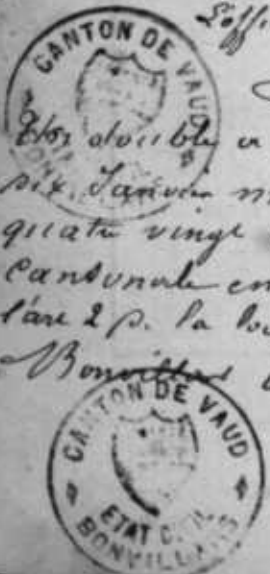 L'off
CANTON DE VAUD
double
six Janvier m
quatre vingt
Cantonale en
l'art 2 p. la
Bonvillars
CANTON DE VAUD
ETAT CIVIL
BONVILLARS